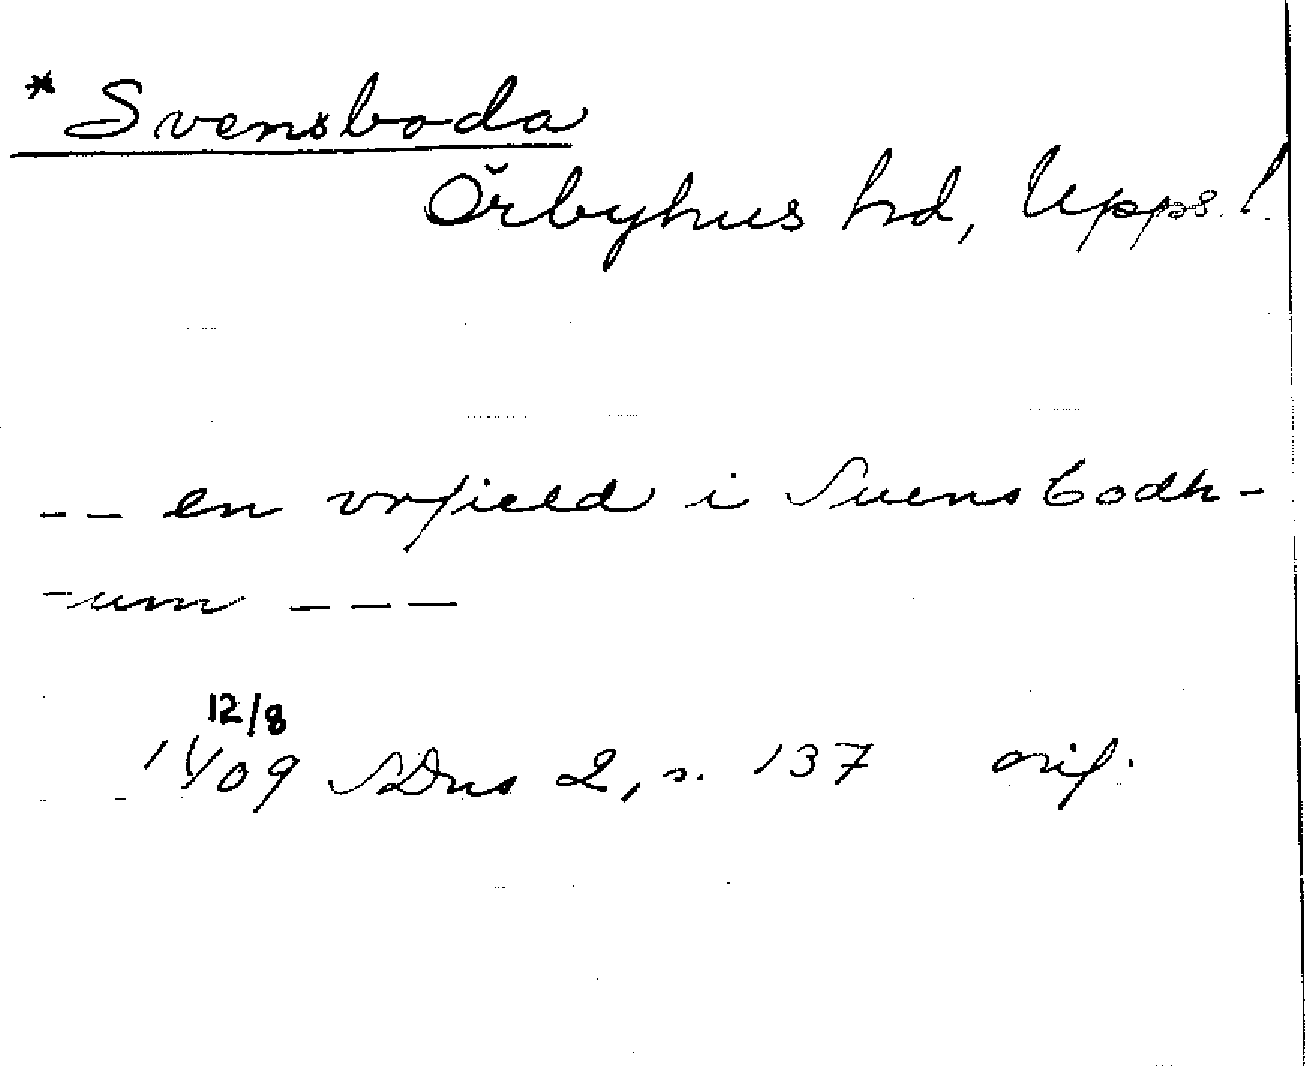 * Svensboda
Örbyhus hd, Upps. l.
-- en vrfield i Suensbodh-
-um ---
12/8
1409 SDns 2, s. 137 orig.